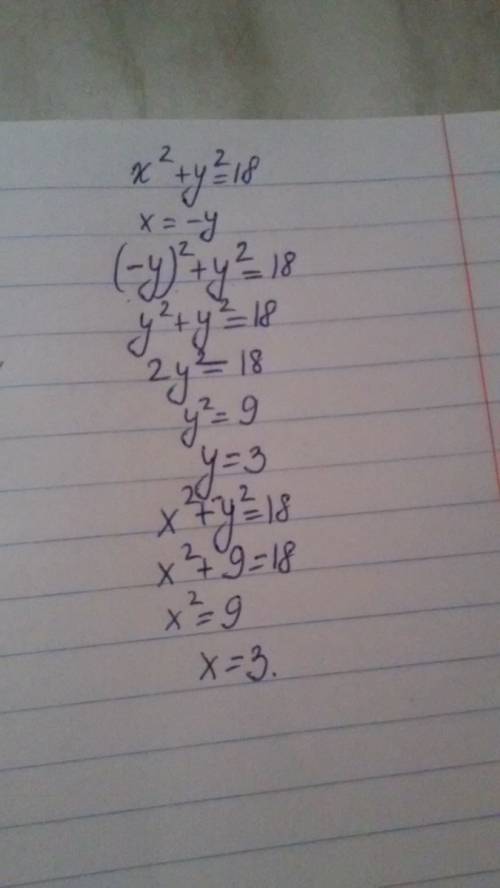 x²+y²=18
x=-y
(-y)²+y²=18
y²+y²=18
2y²=18
y²=9
y=3
x²+y²=18
x²+9=18
x²=9
x=3.